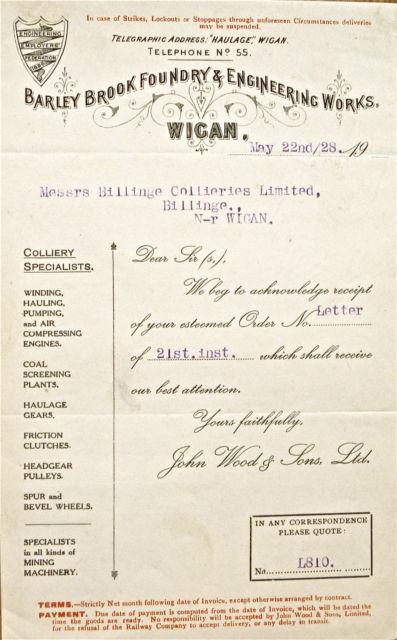 In case of Strikes, Lockouts or Stoppages through unforeseen Circumstances deliveries
may be suspended.
ENGINEERING
EMPLOYERS'
FEDERATION
TELEGRAPHIC ADDRESS: "HAULAGE," WIGAN.
TELEPHONE No 55.
BARLEY BROOK FOUNDRY & ENGINEERING WORKS,
WIGAN,
May 22nd/28. 19
Messrs Billinge Collieries Limited,
Billinge.,
N-r WIGAN.
COLLIERY
SPECIALISTS.
WINDING,
HAULING,
PUMPING,
and AIR
COMPRESSING
ENGINES.
COAL
SCREENING
PLANTS.
HAULAGE
GEARS.
FRICTION
CLUTCHES.
HEADGEAR
PULLEYS.
SPUR and
BEVEL WHEELS.
SPECIALISTS
in all kinds of
MINING
MACHINERY.
Dear Sir (s),
We beg to acknowledge receipt
of your esteemed Order No. Letter
of 21st.inst. which shall receive
our best attention.
Yours faithfully,
John Wood & Sons, Ltd.
IN ANY CORRESPONDENCE
PLEASE QUOTE:
No. L810.
TERMS.—Strictly Net month following date of Invoice, except otherwise arranged by contract.
PAYMENT. Due date of payment is computed from the date of Invoice, which will be dated the
time the goods are ready. No responsibility will be accepted by John Wood & Sons, Limited,
for the refusal of the Railway Company to accept delivery, or any delay in transit.